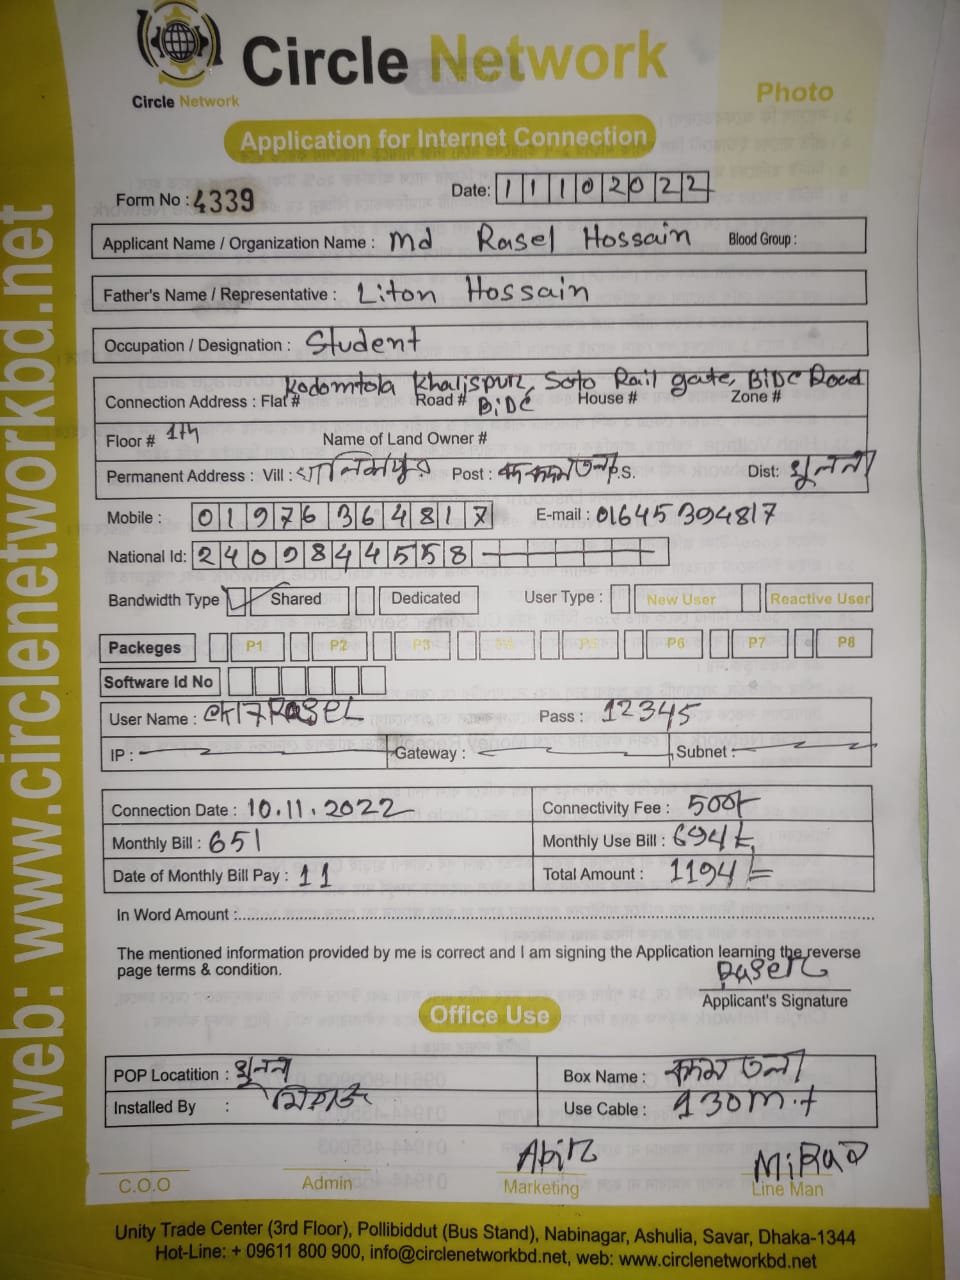 Circle Network
Circle Network
Photo
Application for Internet Connection
Form No : 4339
Date: 11102022
Applicant Name / Organization Name : Md Rasel Hossain Blood Group :
Father's Name / Representative : Liton Hossain
Occupation / Designation : Student
Kadomtola Khalispur, Soto Rail gate, BiDC Road
Connection Address : Flat # Road # BiDC House # Zone #
Floor # 1th Name of Land Owner #
Permanent Address : Vill : খালিশপুর Post : কদমতলা P.S. Dist: খুলনা
Mobile : 01976364817 E-mail : 01645394817
National Id: 2409844558
Bandwidth Type Shared Dedicated User Type : New User Reactive User
Packeges P1 P2 P3 P4 P5 P6 P7 P8
Software Id No
User Name : Pass : 12345
IP : Gateway : Subnet :
Connection Date : 10.11.2022 Connectivity Fee : 500/
Monthly Bill : 651 Monthly Use Bill : 694/=
Date of Monthly Bill Pay : 11 Total Amount : 1194/=
In Word Amount :
The mentioned information provided by me is correct and I am signing the Application learning the reverse
page terms & condition.
Rasel
Applicant's Signature
Office Use
POP Locatition : খুলনা Box Name : কদমতলা
Installed By : মিরাজ Use Cable : 130m.t
Abir MiRaD
C.O.O Admin Marketing Line Man
Unity Trade Center (3rd Floor), Pollibiddut (Bus Stand), Nabinagar, Ashulia, Savar, Dhaka-1344
Hot-Line: + 09611 800 900, info@circlenetworkbd.net, web: www.circlenetworkbd.net
web: www.circlenetworkbd.net